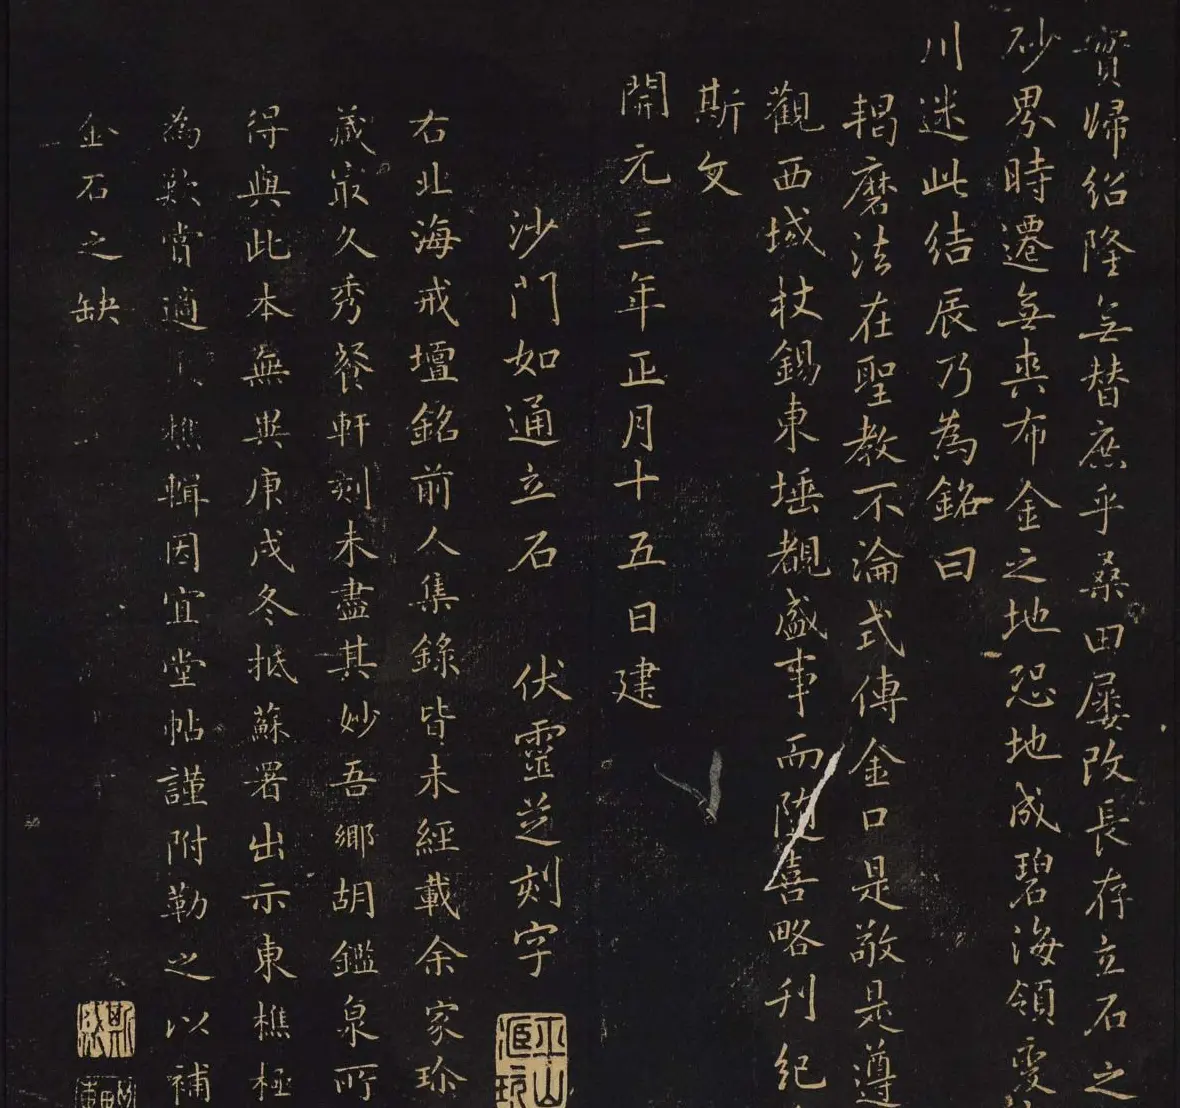 寶歸紹隆無替庶乎桑田屢改長存立石之
砂界時遷無爽布金之地恐地成碧海領變
川迷此結辰乃為銘曰
羯磨法在聖教不淪式傳金口是敬是遵
觀西域杖錫東埵覩盛事而隨喜略刊紀
斯文
開元三年正月十五日建
沙門如通立石 伏靈芝刻字
右北海戒壇銘前人集錄皆未經載余家珍
藏最久秀餐軒刻未盡其妙吾鄉胡鑑泉所
得與此本無異庚戌冬抵蘇署出示東樵極
為歎賞適樵輯因宜堂帖謹附勒之以補
金石之缺